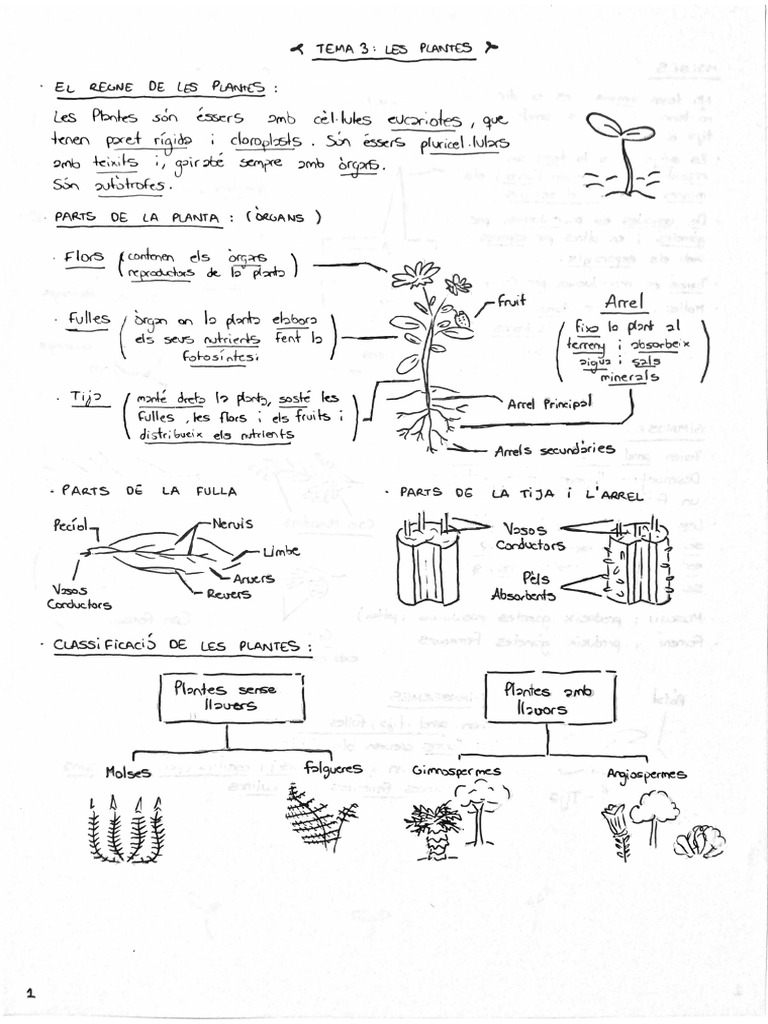 TEMA 3: LES PLANTES
· EL REGNE DE LES PLANTES:
Les Plantes són éssers amb cèl·lules eucariotes, que
tenen paret rígida i cloroplasts. Són éssers pluricel·lulars
amb teixits i, gairabé sempre amb òrgans.
Són autòtrofes.
· PARTS DE LA PLANTA: (ÒRGANS)
· Flors (contenen els òrgans
reproductors de la planta)
· Fulles (òrgan on la planta elabora
els seus nutrients fent la
fotosíntesi)
· Tija (manté dreta la planta, sosté les
fulles, les flors i els fruits i
distribueix els nutrients)
Fruit
Arrel
(fixa la plant al
terreny i absorbeix
aigua i sals
minerals)
Arrel Principal
Arrels secundàries
· PARTS DE LA FULLA
Pecíol
Nervis
Limbe
Anvers
Revers
Vasos
Conductors
· PARTS DE LA TIJA I L'ARREL
Vasos
Conductors
Pèls
Absorbents
· CLASSIFICACIÓ DE LES PLANTES:
Plantes sense
llavors
Plantes amb
llavors
Molses
Falgueres
Gimnospermes
Angiospermes
1